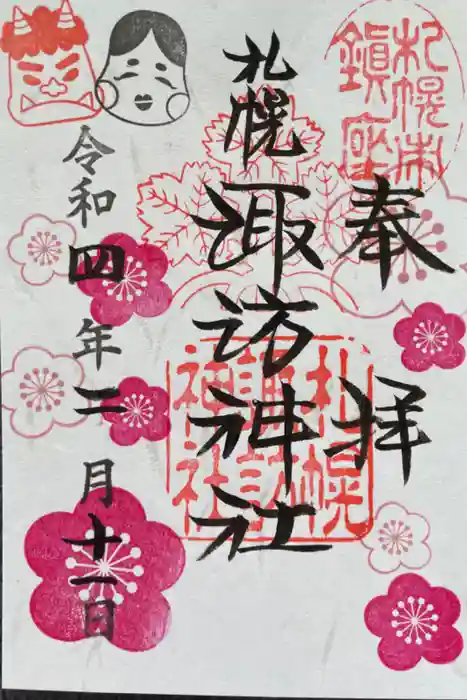 奉拝
札幌市
鎮座
札幌諏訪神社
札幌
諏訪
神社
令和四年二月十一日